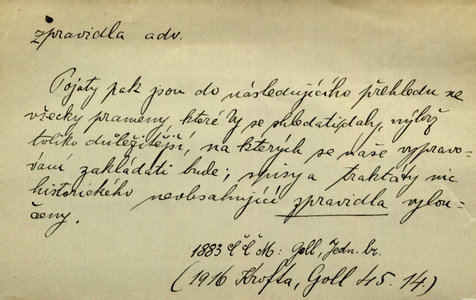 zpravidla adv.
Pojaty pak jsou do následujícího přehledu ne
všecky prameny, které by se shledati daly, nýbrž
toliko důležitější, na kterých se naše vypravo-
vání zakládati bude; spisy a traktáty nic
historického neobsahující zpravidla vylou-
čeny.
1883 ČČM: Goll, Jedn. br.
(1916 Krofta, Goll 45. 14.)